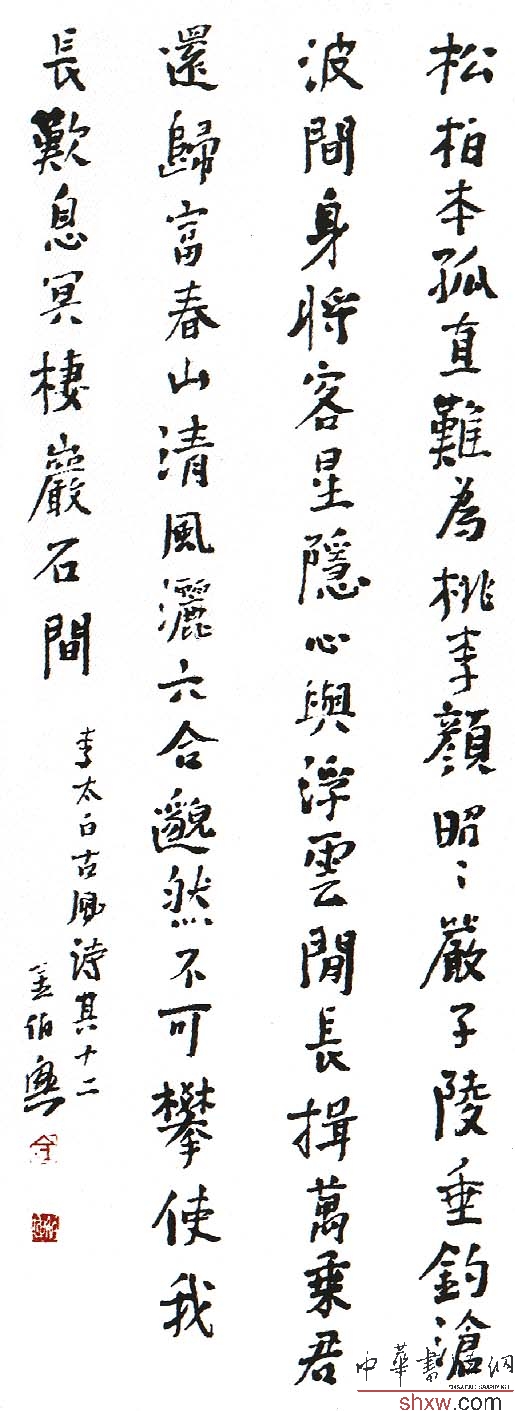 松柏本孤直難為桃李顏昭〻嚴子陵垂釣滄
波間身將客星隱心與浮雲閒長揖萬乘君
還歸富春山清風灑六合邈然不可攀使我
長歎息冥棲巖石間
李太白古風詩其十二
姜伯
中華書法網
shxw.com